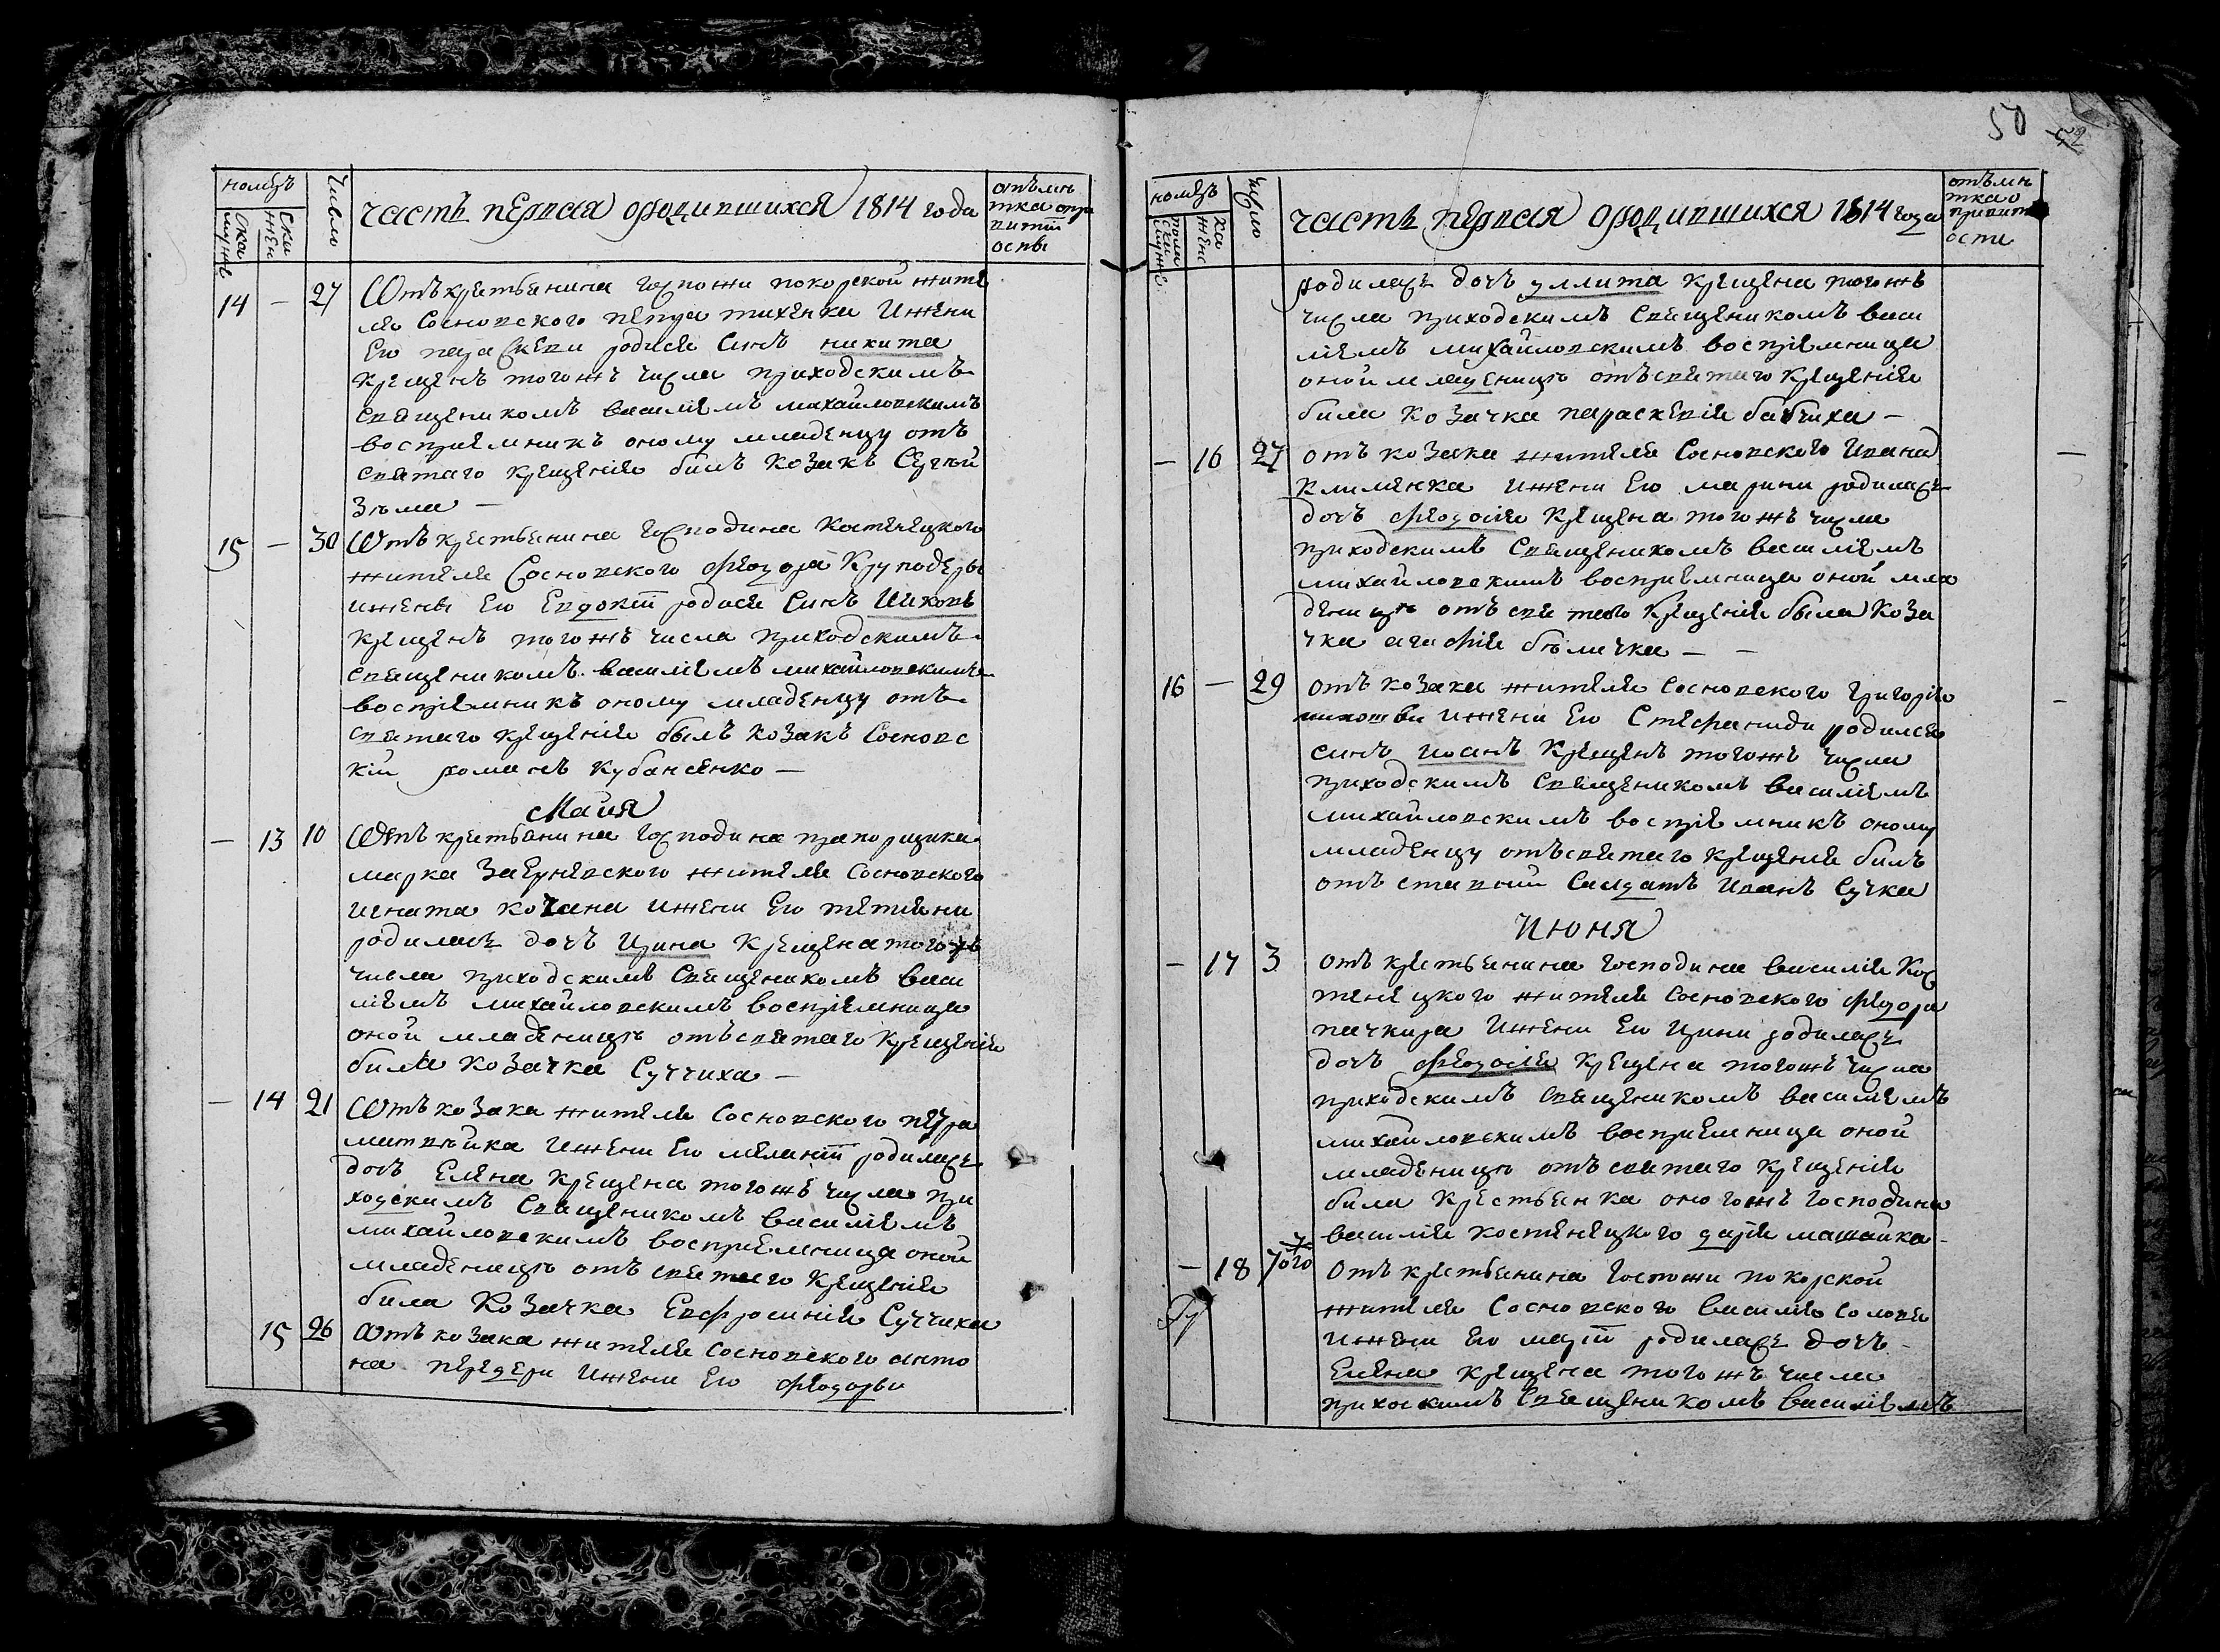 номеръ
мужска
женска
число
часть первая ородившихся 1814 года
отъмѣ
тка опри
витїи
оспы
14 — 27 Отъ крестьянина госпожи покорской жите
ля Сосновского петра тихенка Ижени
Его параскеви родися Синъ никита
крещенъ тогожъ числа приходскимъ
священикомъ василіемъ михайловскимъ
воспріемникъ оному младенцу отъ
святаго крещенія билъ козакъ Сергѣй
Зѣма —
15 — 30 Отъ крестьянина господина Костенецкого
жителя Сосновского феодора Круподери
ижены Его Евдокїи родися Синъ Іяковъ
крещенъ тогожъ числа приходскимъ
священикомъ василіемъ михайловскимъ
воспріемникъ оному младенцу отъ
святаго крещенія былъ козакъ Сосновс
кій романъ Кубансенко —
Маия
— 13 10 Отъ крестьянина господина прапорщика
марка Забѣрневского жителя Сосновского
игната кочана ижени Его тетяни
родилась дочъ Ирина крещена тогожъ
числа приходскимъ Священикомъ васи
ліемъ михайловскимъ воспріемница
оной младеницѣ отъ святаго крещенія
била козачка Сучиха —
— 14 21 Отъ козака жителя Сосновского петра
матвѣйка Ижени Его меланїи родилась
дочъ Елена крещена тогожъ числа при
ходскимъ Священикомъ василіемъ
михайловскимъ воспріемница оной
младеницѣ отъ святаго крещенія
била козачка Евфросинія Сучиха
15 26 Отъ козака жителя Сосновского анто
на передери Ижени Его феодори
50 52
номеръ
мужс
женс
ка
число
часть первая ородившихся 1814 года
отъмѣ
тка о
привит
оспи
родилась дочъ уллита крещена тогожъ
числа приходскимъ Священикомъ васи
ліемъ михайловскимъ воспріемница
оной младеницѣ отъ святаго крещенія
била козачка параскевія бабчиха —
— 16 27 отъ козака жителя Сосновского Ивана
Клименка Ижени Его марини родилась
дочъ феодосія крещена тогожъ числа
приходскимъ Священикомъ василіемъ
михайловскимъ воспріемница оной мла
деницѣ отъ святаго крещенія была коза
чка агафія бѣличка — —
16 — 29 отъ козака жителя Сосновского григорія
Ижени Его Стефаниди родился
синъ иоанъ крещенъ тогожъ числа
приходскимъ Священикомъ василіемъ
михайловскимъ воспріемникъ оному
младенцу отъ святаго крещенія билъ
отъставний Салдатъ Иванъ Сучка
Июня
— 17 3 отъ крестьянина господина василія Кос
тенецкого жителя Сосновского феодора
пачкира Ижени Его Ирини родилась
дочъ феодосія крещена тогожъ числа
приходскимъ священикомъ василіемъ
михайловскимъ воспріемница оной
младеницѣ отъ святаго крещенія
била крестьянка оногожъ господина
василія костенецкого дарія машайка —
— 18 7ого отъ крестьянина госпожи покорской
жителя Сосновского василія Соловя
Ижени Его марїи родилась дочъ
Елена крещена тогожъ числа
прихоскимъ Священикомъ василіемъ